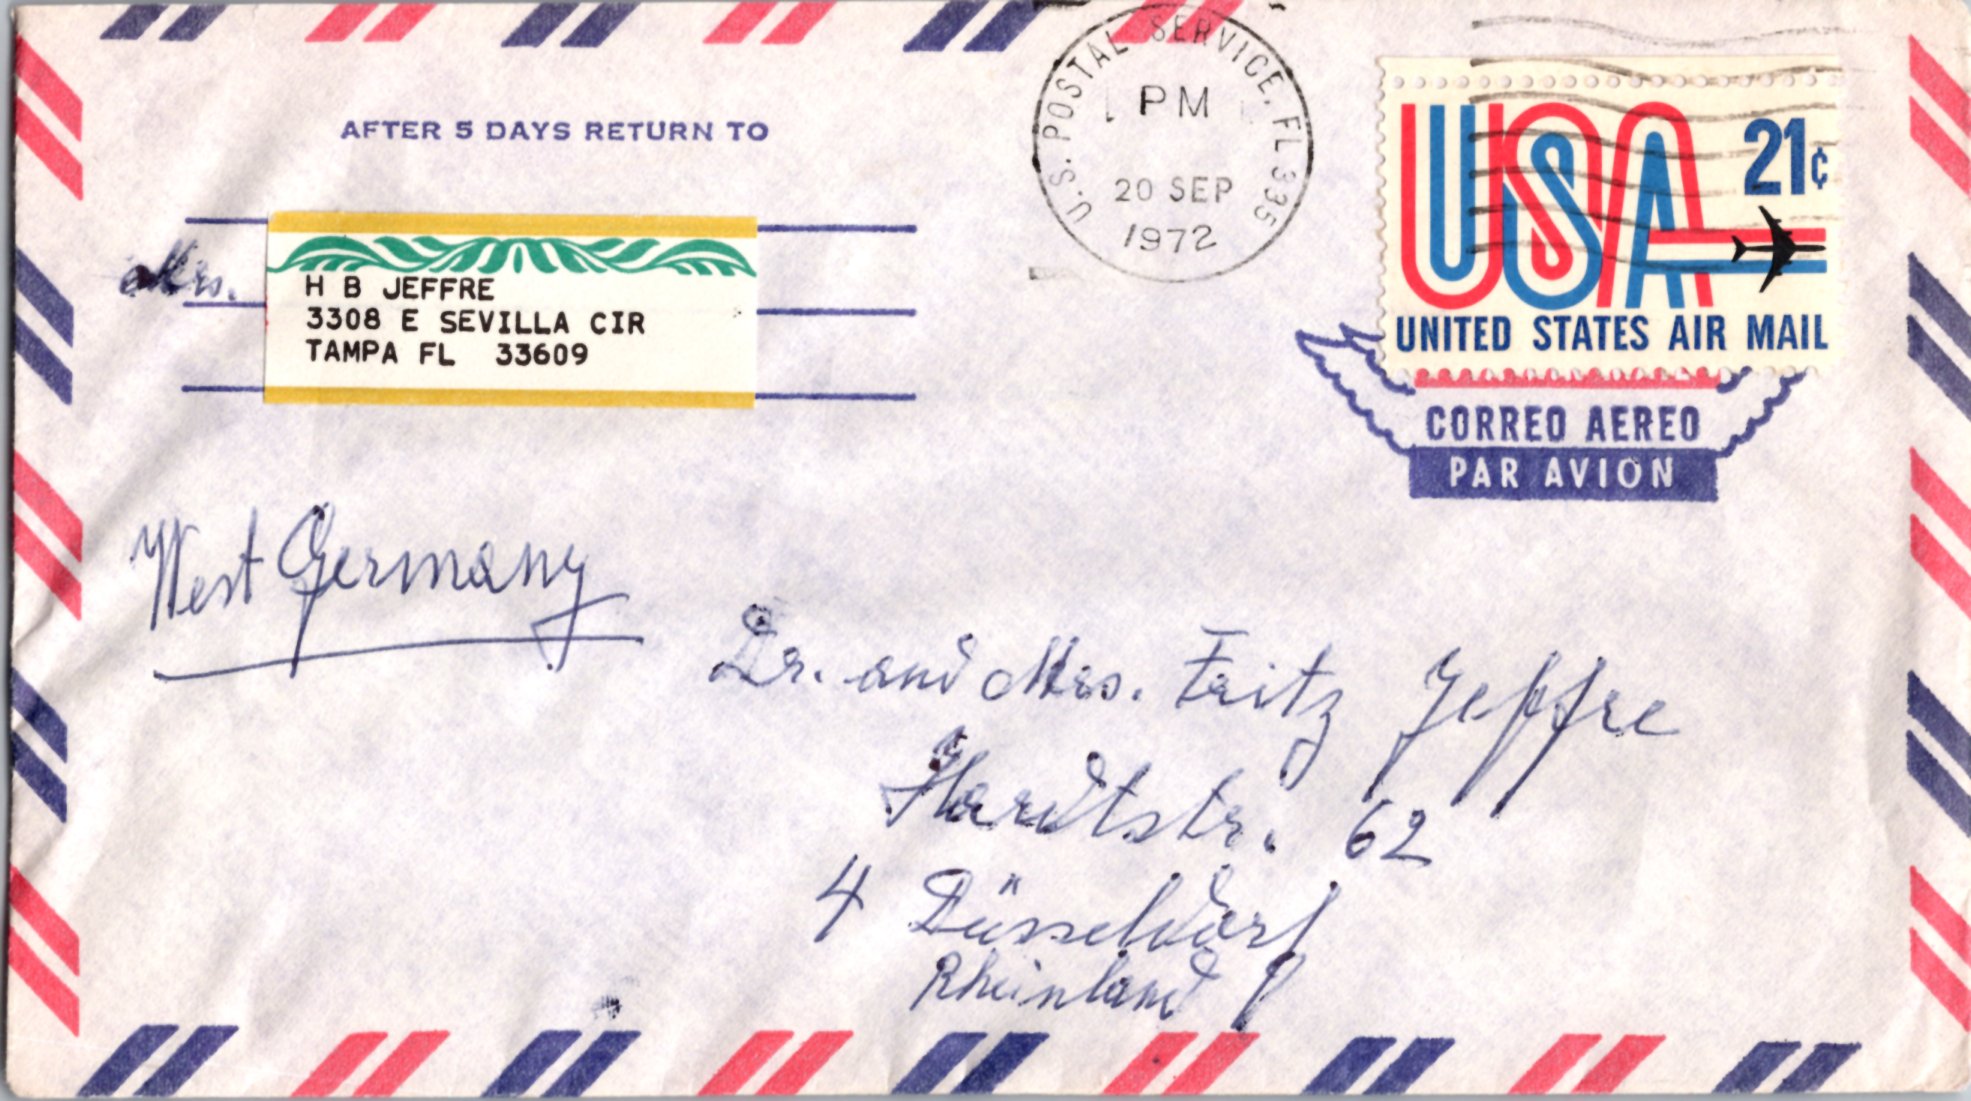 AFTER 5 DAYS RETURN TO
Mrs.
H B JEFFRE
3308 E SEVILLA CIR
TAMPA FL 33609
U.S. POSTAL SERVICE, FL 335
PM
20 SEP
1972
USA 21¢
UNITED STATES AIR MAIL
CORREO AEREO
PAR AVION
West Germany
Dr. and Mrs. Fritz Jeffre
Hardtstr. 62
4 Düsseldorf
Rheinland